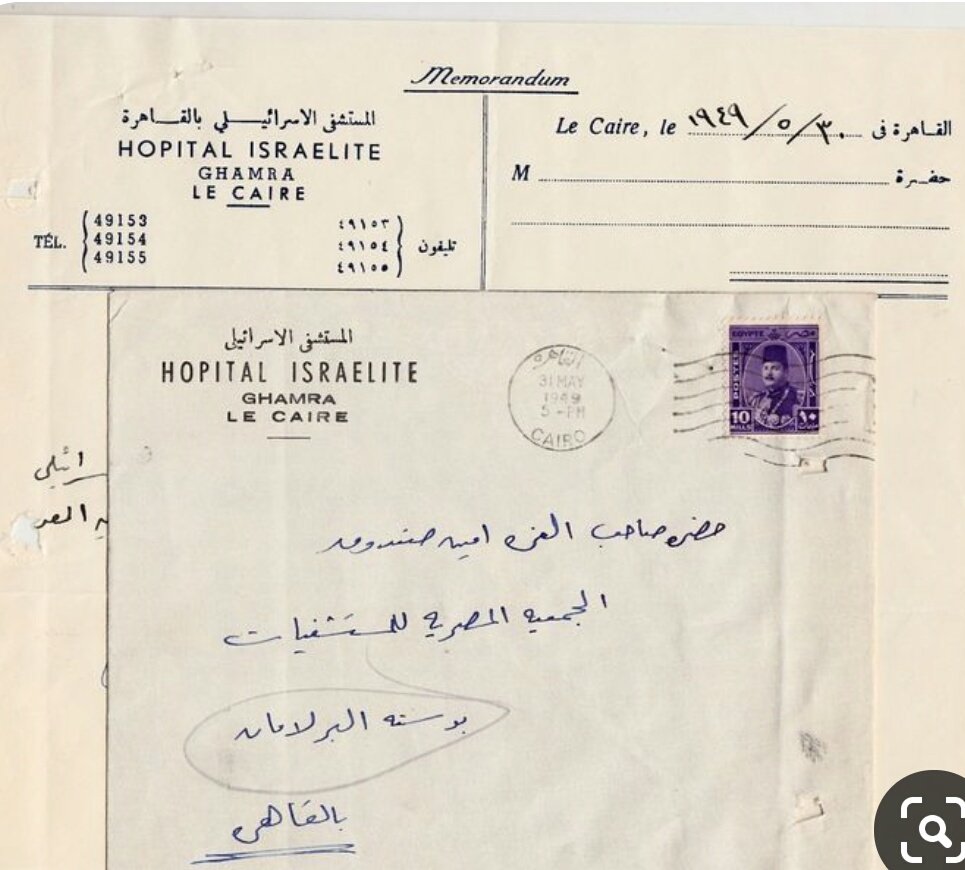 Memorandum
المستشفى الاسرائيلي بالقاهرة
HOPITAL ISRAELITE
GHAMRA
LE CAIRE
TÉL. 49153 ٤٩١٥٣ تليفون
49154 ٤٩١٥٤
49155 ٤٩١٥٥
Le Caire, le ١٩٤٩/٥/٣٠ القاهرة فى
M حضرة
المستشفى الاسرائيلى
HOPITAL ISRAELITE
GHAMRA
LE CAIRE
القاهرة
31 MAY
1949
5 - PM
CAIRO
EGYPTE مصر
POSTES
10 ١٠
MILLS
حضرة صاحب العزة امين صندوق
الجمعية المصرية للمستشفيات
بوسته البرلمان
بالقاهرة